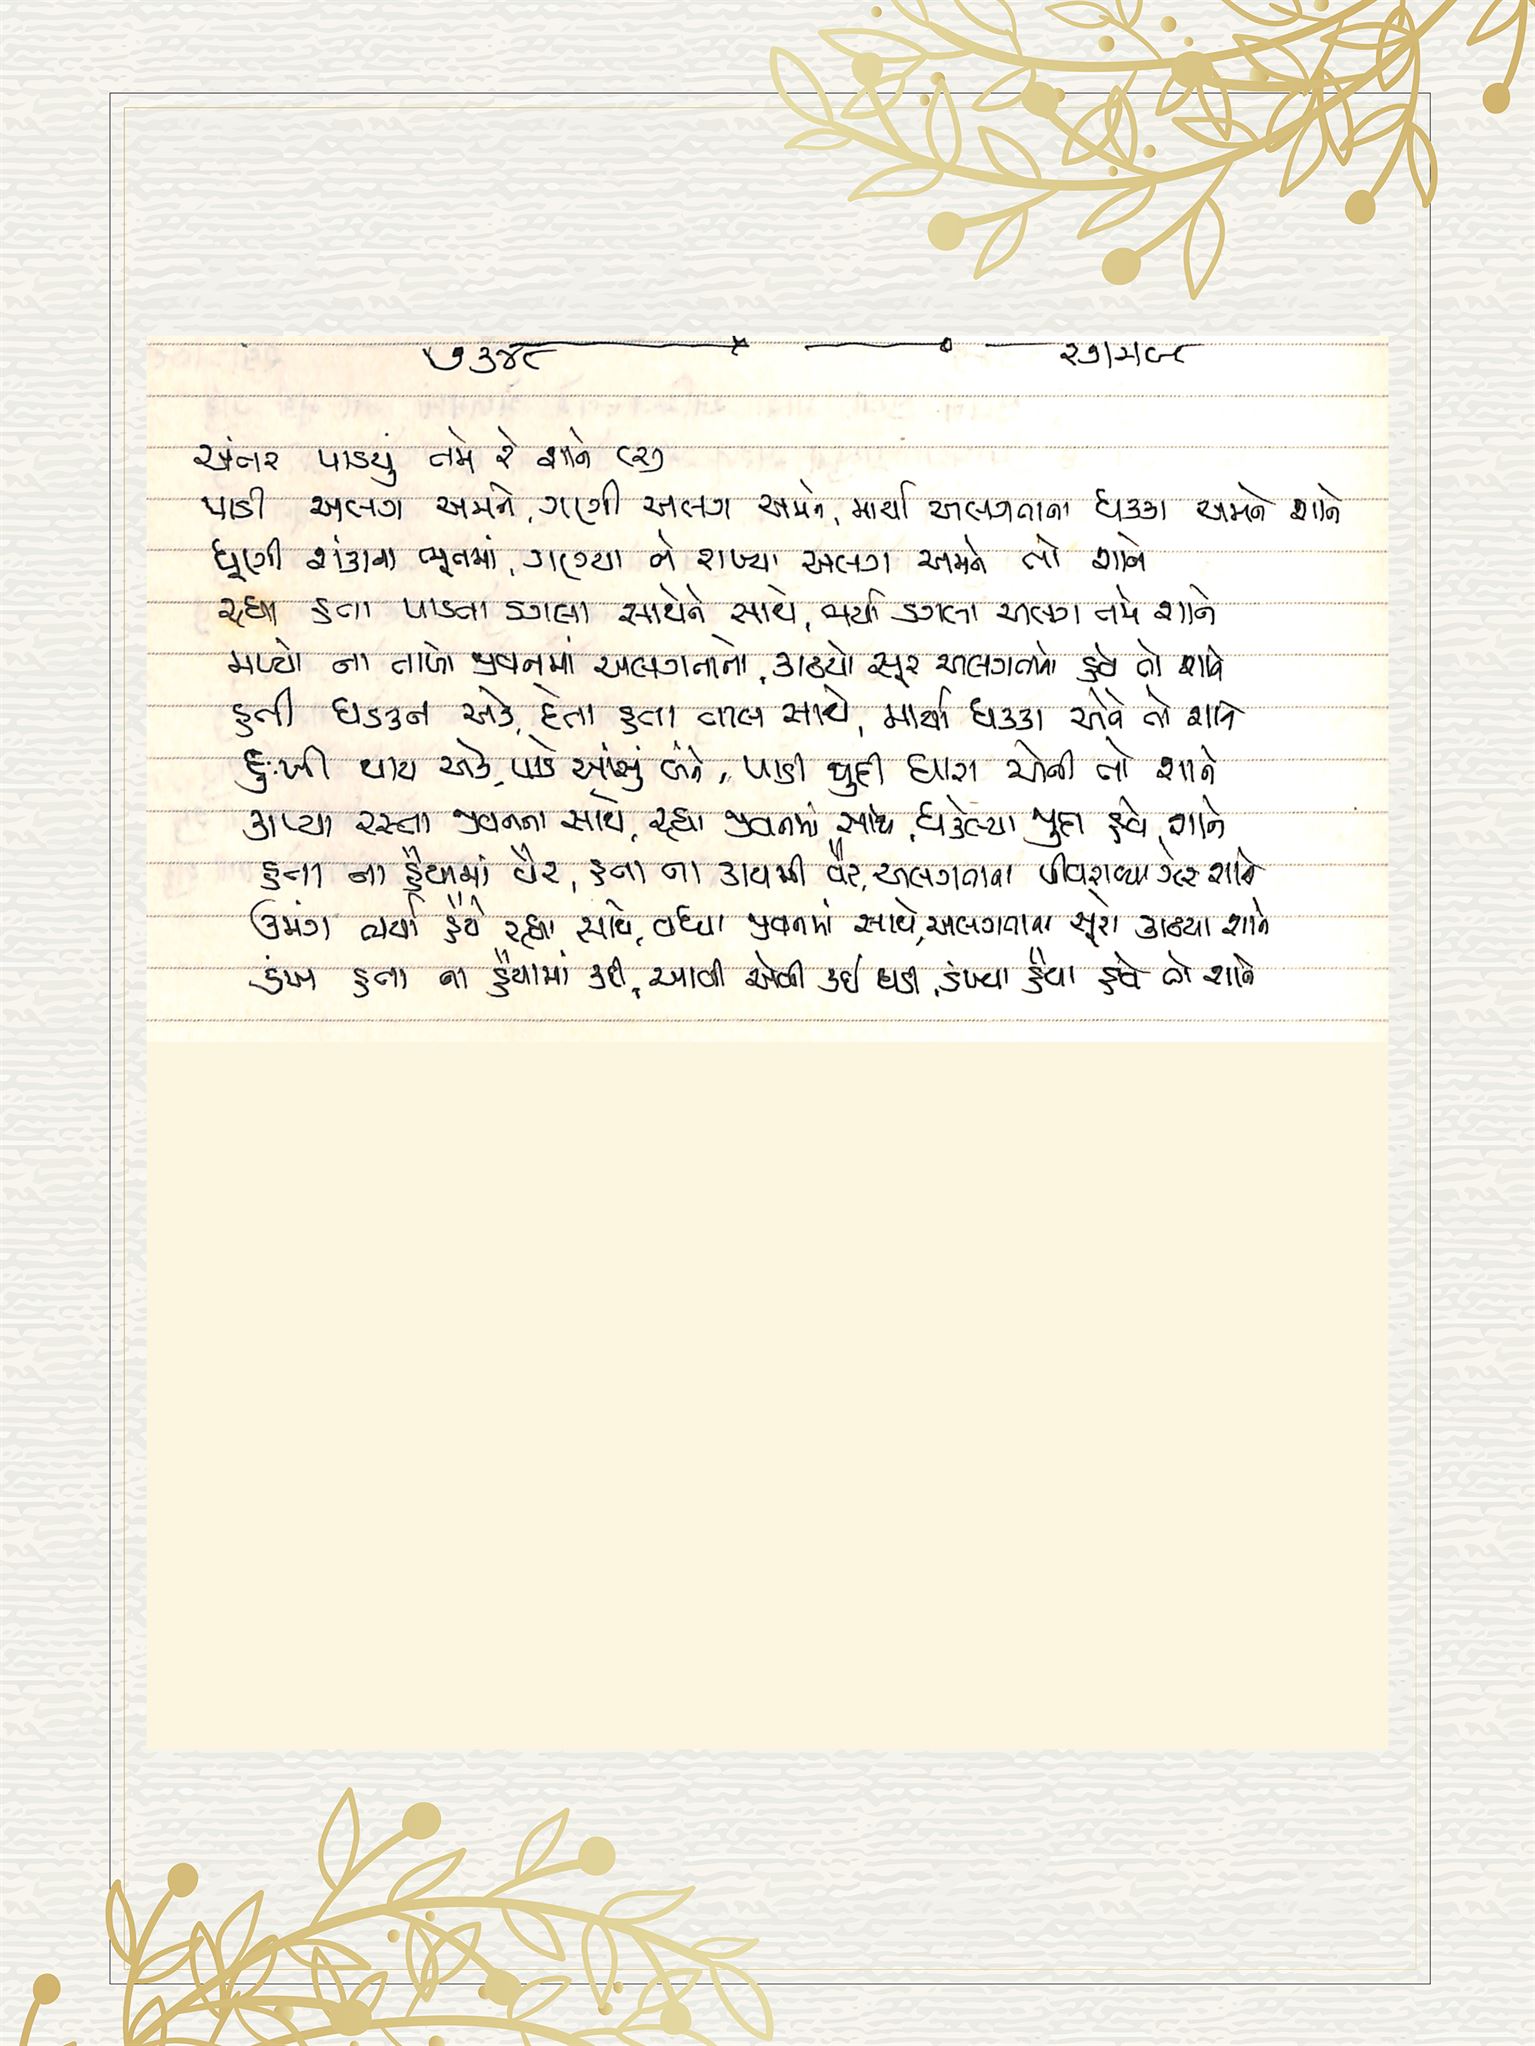 ૭૩૪૮
અંતર પાડયું તમે રે શાને (૨)
પાડી અલગ અમને, ગણી અલગ અમને, માર્યા અલગતાના ધક્કા અમને શાને
ધૂણી શંકાના ભૂતમાં, ગણ્યા ને રાખ્યા અલગ અમને તો શાને
રહ્યા હતા પાડતા ડગલા સાથેને સાથે, ભર્યા ડગલા અલગ તમે શાને
મળ્યો ના તાળો જીવનમાં અલગતાનો, કાઢયો સૂર અલગતાનો હવે તો શાને
હતી ધડકન એક, દેતા હતા તાલ સાથે, માર્યા ધક્કા એવે તો શાને
દુઃખી થાય એક, પાડે આંસું બંને, પાડી જુદી ધારા એની તો શાને
કાપ્યા રસ્તા જીવનના સાથે, રહ્યા જીવનમાં સાથે, ધકેલ્યા જુદા હવે શાને
હતા ના હૈયામાં વૈર, હતા ના કાયમી વૈર, અલગતાના પીવરાવ્યા ઝેર શાને
ઉમંગ ભર્યા હૈયે રહ્યા સાથે, વધ્યા જીવનમાં સાથે, અલગતાના સૂરો કાઢયા શાને
ડંખ હતા ના હૈયામાં કદી, આવી એવી કઈ ઘડી, ડંખ્યા હૈયા હવે તો શાને